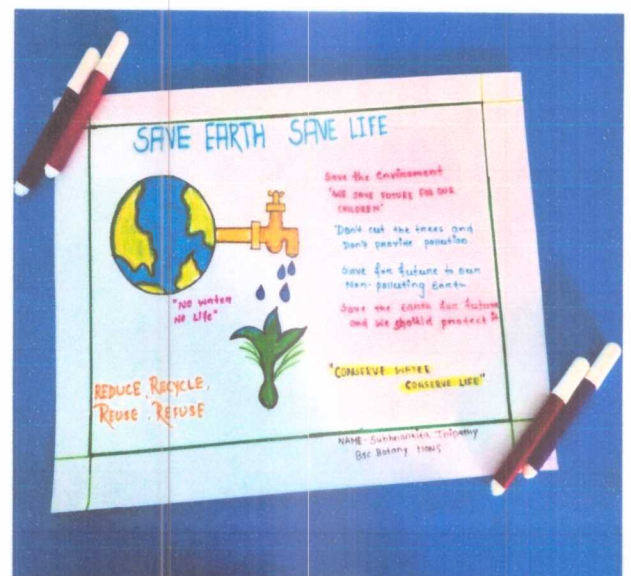 SAVE EARTH SAVE LIFE
Save the Environment
"WE SAVE FUTURE FOR OUR
CHILDREN"
Don't cut the trees and
Don't provide pollution.
Save for future to our
Non-polluting Earth
Save the Earth for future
and we should protect it
"NO water
NO Life"
"CONSERVE WATER
CONSERVE LIFE"
REDUCE, RECYCLE,
REUSE, REFUSE
NAME- Subhrankita Tripathy
Bsc Botany HONS